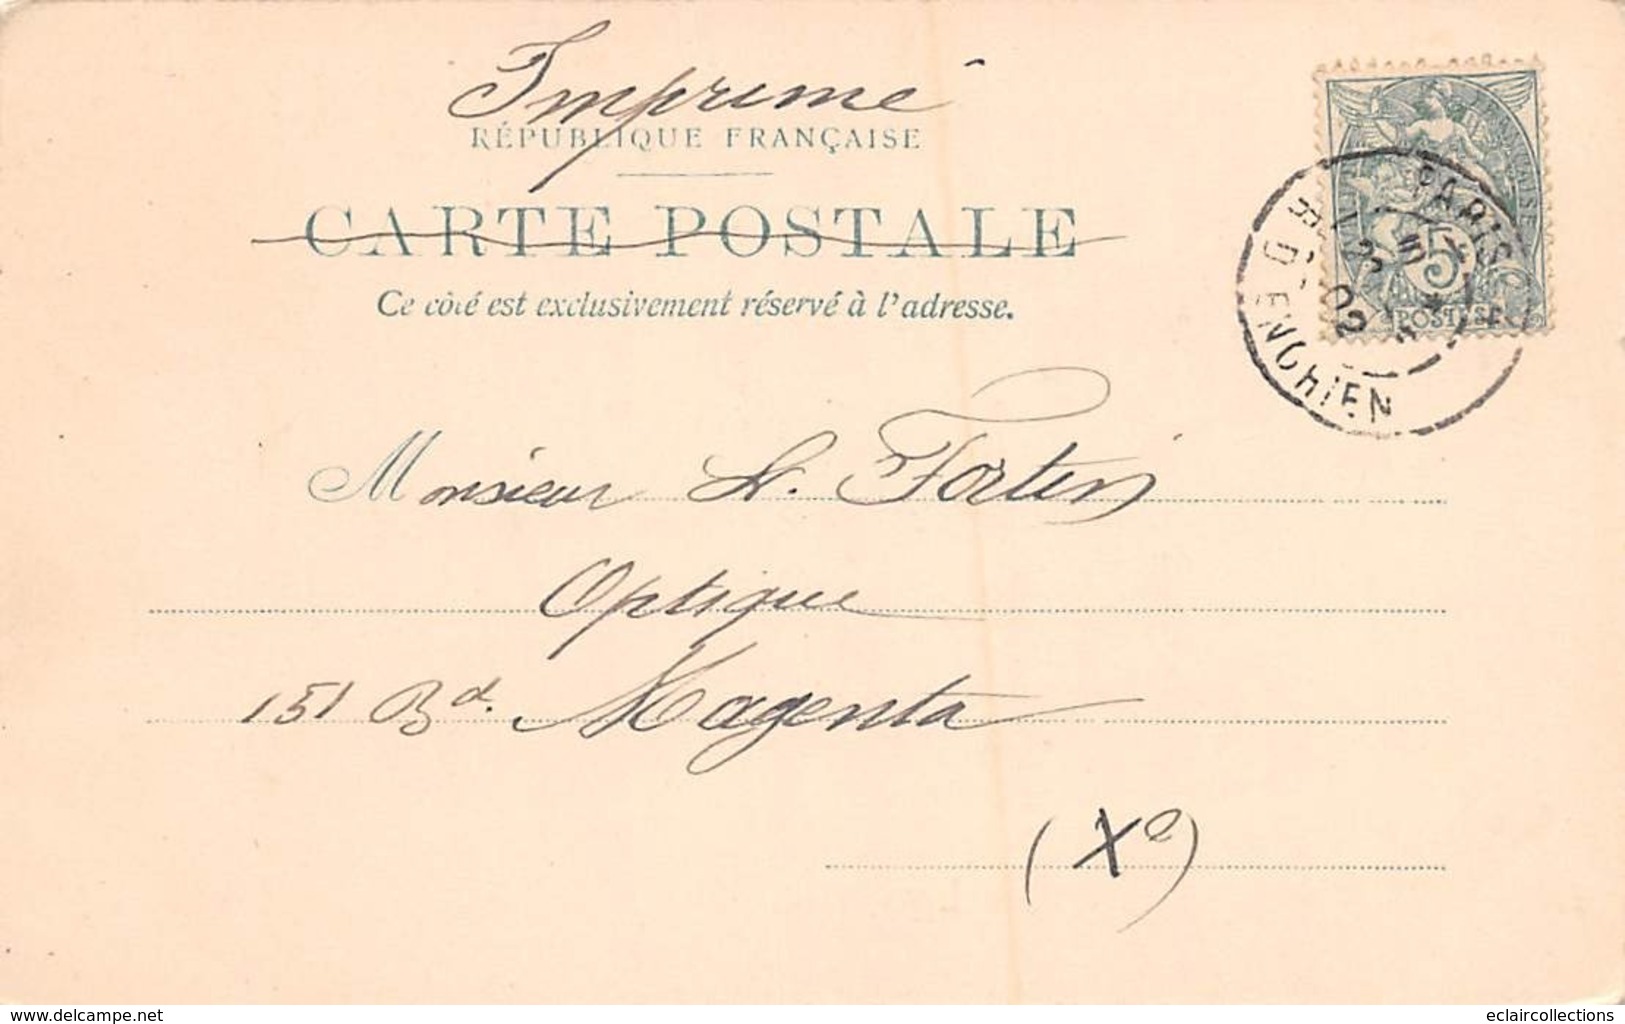 Imprimé
RÉPUBLIQUE FRANÇAISE
CARTE POSTALE
Ce côté est exclusivement réservé à l'adresse.
PARIS
R. D'ENGHIEN
02
5
POSTES
Monsieur L. Fortin
Optique
151 Bd. Magenta
(Xe)
www.delcampe.net
eclaircollections